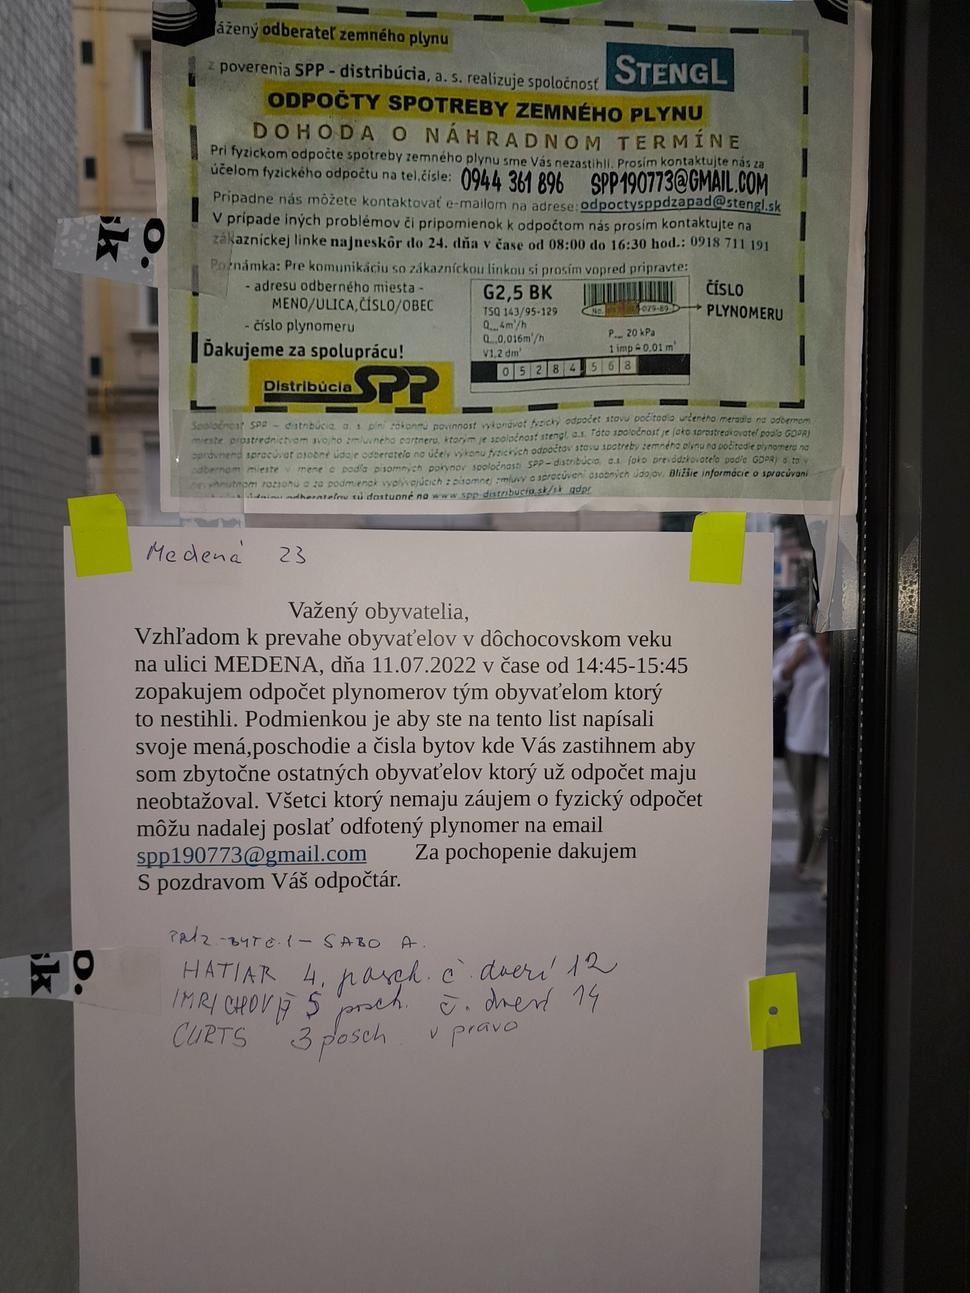 ážený odberateľ zemného plynu
z poverenia SPP - distribúcia, a. s. realizuje spoločnosť STENGL
ODPOČTY SPOTREBY ZEMNÉHO PLYNU
DOHODA O NÁHRADNOM TERMÍNE
Pri fyzickom odpočte spotreby zemného plynu sme Vás nezastihli. Prosím kontaktujte nás za
účelom fyzického odpočtu na tel.čísle: 0944 361 896 SPP190773@GMAIL.COM
Prípadne nás môžete kontaktovať e-mailom na adrese: odpoctysppdzapad@stengl.sk
V prípade iných problémov či pripomienok k odpočtom nás prosím kontaktujte na
zákazníckej linke najneskôr do 24. dňa v čase od 08:00 do 16:30 hod.: 0918 711 191
Poznámka: Pre komunikáciu so zákazníckou linkou si prosím vopred pripravte:
- adresu odberného miesta -
MENO/ULICA,ČÍSLO/OBEC
- číslo plynomeru
Ďakujeme za spoluprácu!
Distribúcia SPP
G2,5 BK
TSQ 143/95-129
4m³/h
0,016m³/h
V1,2 dm³
P 20 kPa
1 imp ≙ 0,01 m³
0 5 2 8 4 5 6 8
ČÍSLO
PLYNOMERU
Spoločnosť SPP – distribúcia, a. s. plní zákonnú povinnosť vykonávať fyzický odpočet stavu počítadla určeného meradla na odbernom
mieste prostredníctvom svojho zmluvného partnera, ktorým je spoločnosť stengl, a.s. Táto spoločnosť je (ako sprostredkovateľ podľa GDPR)
oprávnená spracúvať osobné údaje odberateľa na účely výkonu fyzických odpočtov stavu spotreby zemného plynu na počítadle plynomeru na
odbernom mieste v mene a podľa písomných pokynov spoločnosti SPP – distribúcia, a.s. (ako prevádzkovateľa podľa GDPR) a to v
nevyhnutnom rozsahu a za podmienok vyplývajúcich z písomnej zmluvy o spracúvaní osobných údajov. Bližšie informácie o spracúvaní
údajov odberateľov sú dostupné na www.spp-distribucia.sk/sk_gdpr
Medená 23
Važený obyvatelia,
Vzhľadom k prevahe obyvaťelov v dôchocovskom veku
na ulici MEDENA, dňa 11.07.2022 v čase od 14:45-15:45
zopakujem odpočet plynomerov tým obyvaťelom ktorý
to nestihli. Podmienkou je aby ste na tento list napísali
svoje mená,poschodie a čisla bytov kde Vás zastihnem aby
som zbytočne ostatných obyvaťelov ktorý už odpočet maju
neobtažoval. Všetci ktorý nemaju záujem o fyzický odpočet
môžu nadalej poslať odfotený plynomer na email
spp190773@gmail.com Za pochopenie dakujem
S pozdravom Váš odpočtár.
BYT Č.1 – SABO A.
HATIAR 4. posch. č. dverí 12
IMRICHOVÁ 5 posch. č. dverí 14
CURTS 3 posch. v pravo